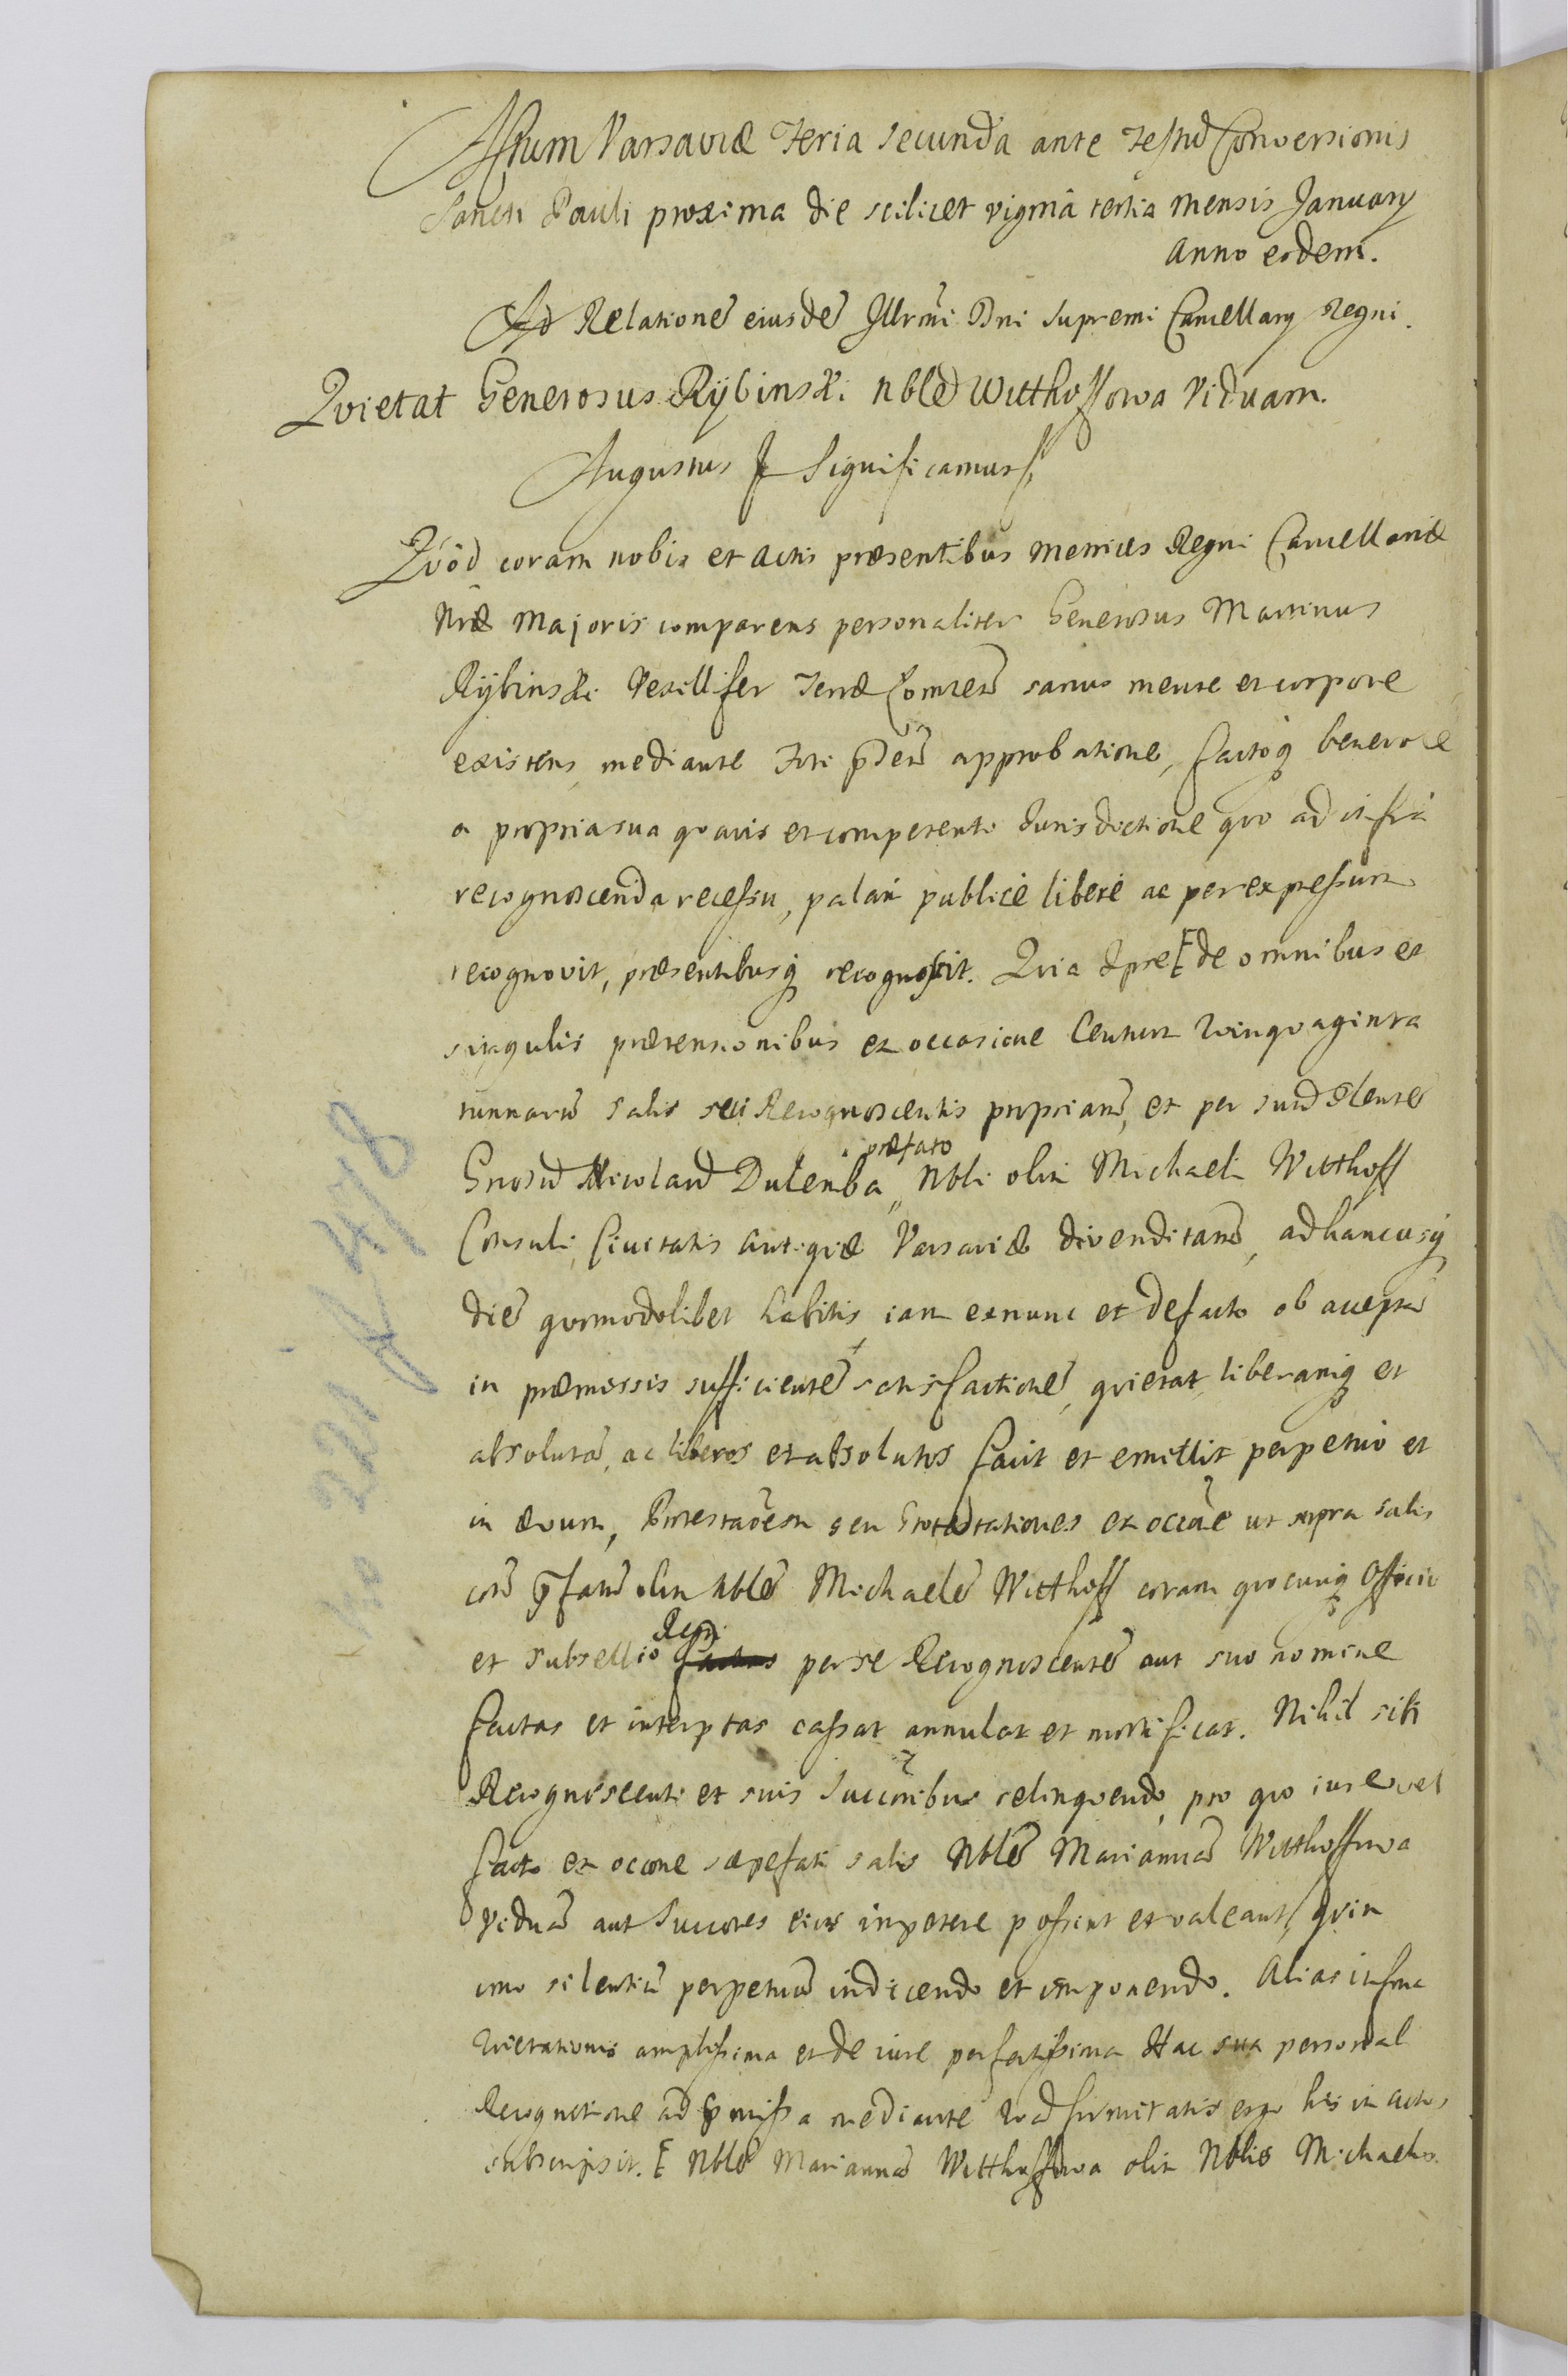 Actum Varsaviæ Feria secunda ante Festũ Conversionis
Sancti Pauli proxima die scilicet vigesiã tertia mensis January
anno eodem.
Ad Relationẽ eiusdẽ Illrm̃i Dni Supremi Cancellary Regni.
Qvietat Generosus Rÿbinski Nblẽ Witthoffowa Viduam.
Augustus &c Significamus &c
Qvòd coram nobis et actis præsentibus Metrices Regni Cancellariæ
Nræ Majoris comparens personaliter Generosus Martinus
Rÿbinski Vexillifer Terræ sanus mente et corpore
existens, mediante Fori approbatione, factoq benevole
a propria sua qvavis et competenti Jurisdictione qvo ad infra
recognoscenda recessu, palàm publicè liberè ac per expressum
recognovit, præsentibusq recognoscit. Qvia Ipse [ de omnibus et
singulis prætensionibus ex occasione Centum Qvinqvaginta
tunnarũ salis seu Recognoscentis propriarũ, et per
Gnosũ Nicolaũ Dulemba præfato Nbli olim Michaeli Witthoff
Consuli Civitatis Antiqvæ Varsaviæ divenditarũ, ad hancusq
diẽ qvomodolibet habitis, iam exnunc et de facto ob acceptã
in præmissis sufficientẽ satisfactionẽ, qvietat, liberamq et
absolutã, ac liberos et absolutos facit et emittit perpetuò et
in ævum, seu Protestationes ex occone ut supra salis
cont̃ p̃fatũ olim Nblẽ Michaelẽ Witthoff coram qvocunq Officio
et subsellio Regni factas per se Recognoscentẽ aut suo nomine
factas et interptas cassat annulat et mortificat. Nihil sibi
Recognoscenti et suis Succõribus relinqvendo, pro qvo iure vel
facto ex occone sæpefati salis Nblẽ Mariannã Witthoffowa
Viduã aut Succores eius impetere possent et valeant, qvin
imo silentiũ perpetuũ indicendo et imponendo. Alias in forma
Qvietationis amplissima et de iure perfectissima Hac sua personal
Recognitione ad p̃missa mediante qvod firmitatis ergo his in actis
subscripsit. [ Nblẽ Mariannã Witthoffowa olim Nblis Michaelis
No 221 K 478